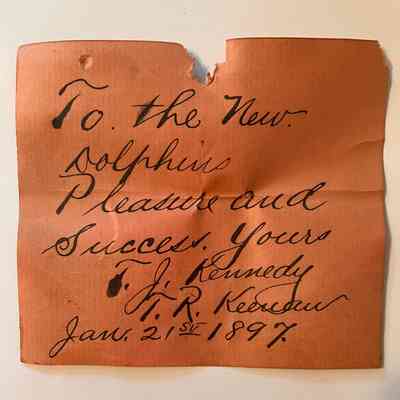 To. the New.
Dolphins
Pleasure and
Success. Yours
T. J. Kennedy
T. R. Keenan
Jan. 21st 1897.